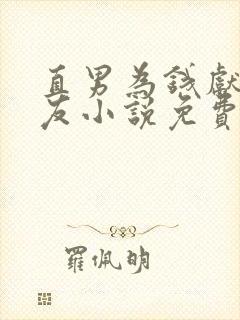 直男為錢獻
友小說免費
羅佩明